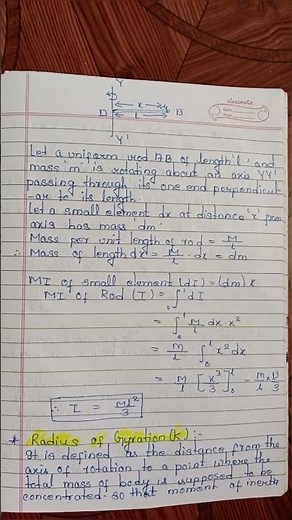 Y
x
dx
D
l
B
Y'
classmate
Date
Page
Let a uniform rod AB, of length 'l' and
mass 'm' is rotating about an axis YY'
passing through its one end perpendicul-
-ar to its length
Let a small element dx at distance 'x' from
axis has mass dm
Mass per unit length of rod = M/l
∴ Mass of length dx = M/l . dx = dm
MI of small element (dI) = (dm) x
MI of Rod (I) = ∫₀ˡ dI
= ∫₀ˡ M/l dx . x²
= M/l ∫₀ˡ x² dx
= M/l [x³/3]₀ˡ = M/l × l³/3
∴ I = Ml²/3
* Radius of Gyration (k) :-
It is defined as the distance from the
axis of rotation to a point where the
total mass of body is supposed to be
concentrated. so that moment of inerti